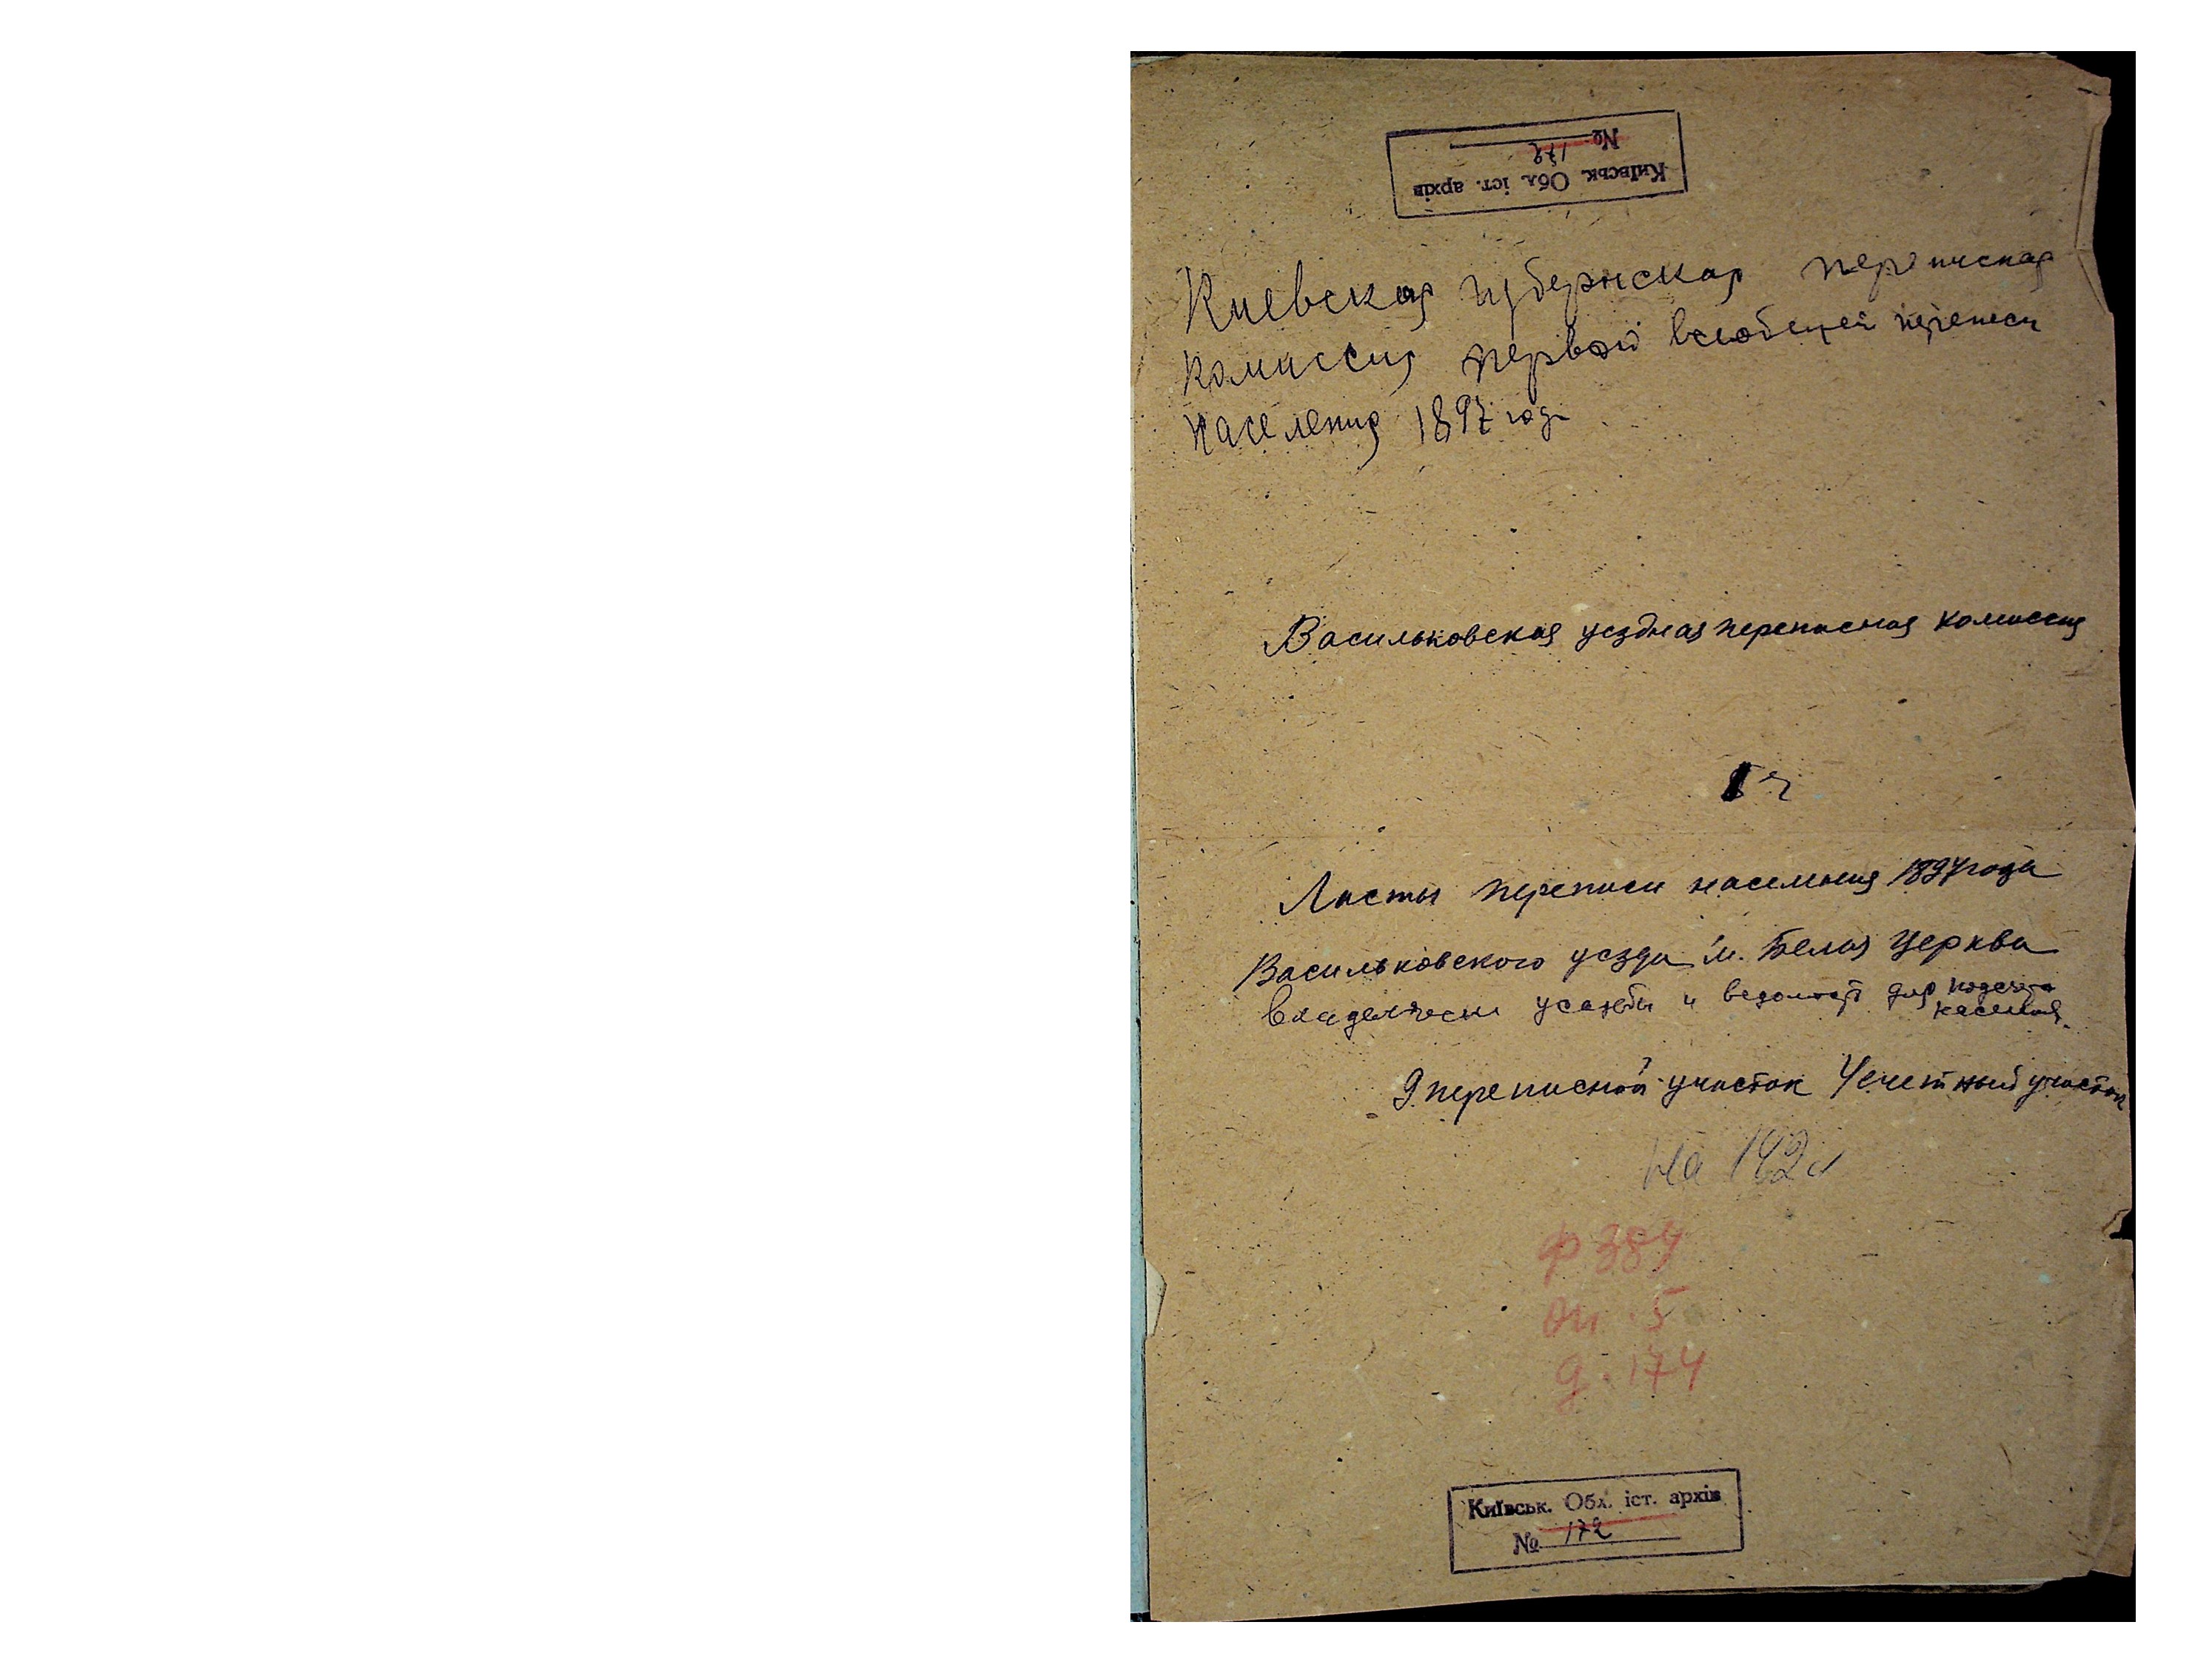 Київськ. Обл. іст. архів
№ 172
Киевская губернская переписная
комиссия первой всеобщей переписи
населения 1897 года
Васильковская уездная переписная комиссия
Листы переписи населения 1897 года
Васильковского уезда м. Белая Церква
владельческ усадьбы и ведомость для подсчета
населения.
9 переписной участок 4 счетный участок
На 142 л
ф 384
оп. 5
д. 174
Київськ. Обл. іст. архів
№ 172